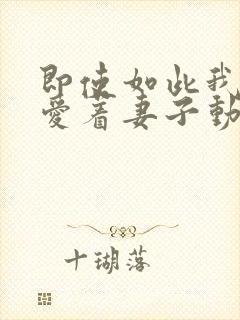 即使如此我
爱着妻子動
十瑚落